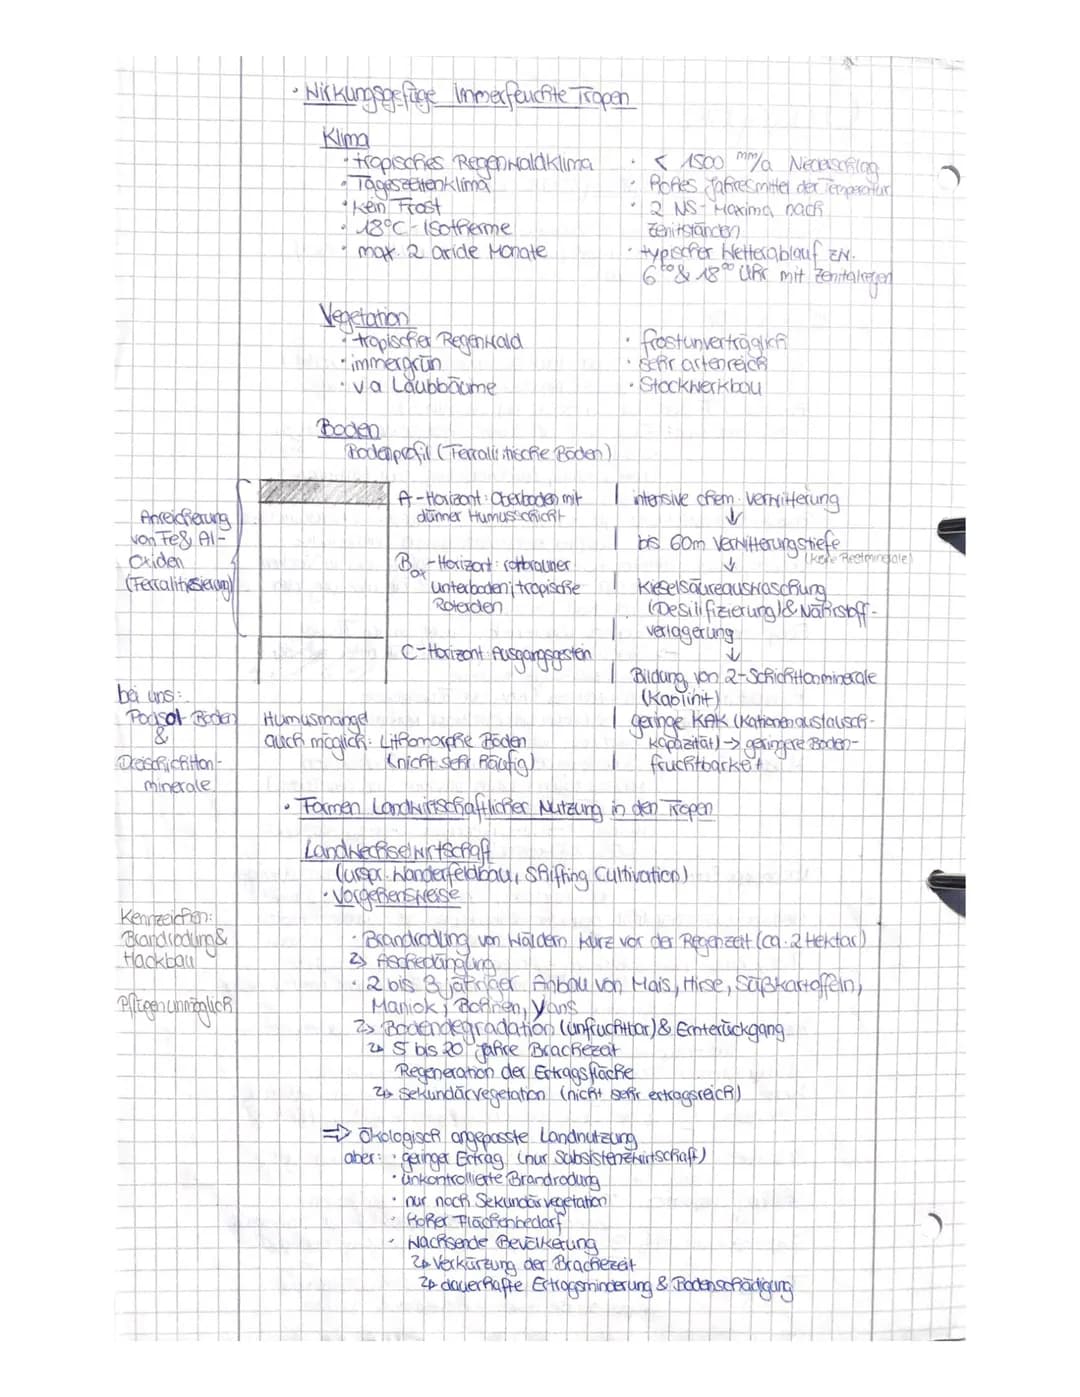 • Wirkungsgefüge Immerfeuchte Tropen
Klima
• tropisches Regenwaldklima
• Tageszeitenklima
• Kein Frost
• 18°C-Isotherme
• max. 2 aride Monate
• < 1500 mm/a Niederschlag
• hohes Jahresmittel der Temperatur
• 2 NS-Maxima nach
Zenitständen
• typischer Wetterablauf zw.
6⁰⁰ & 18⁰⁰ Uhr mit Zenitalregen
Vegetation
• tropischer Regenwald
• immergrün
• v.a Laubbäume
• frostunverträglich
• sehr artenreich
• Stockwerkbau
Boden
Bodenprofil (Ferrallitische Böden)
Anreicherung
von Fe & Al-
Oxiden
(Ferralitisierung)
A-Horizont: Oberboden mit
dünner Humusschicht
Box-Horizont: rotbrauner
Unterboden; tropische
Roterden
C-Horizont: Ausgangsgestein
intensive chem. Verwitterung
↓
bis 60m Verwitterungstiefe
(keine Restminerale)
↓
Kieselsäureauswaschung
(Desilifizierung) & Nährstoff-
verlagerung
↓
Bildung von 2-Schichttonminerale
(Kaolinit)
geringe KAK (Kationenaustausch-
kapazität) → geringere Boden-
fruchtbarkeit
bei uns:
Podsol Böden
&
Dreischichtton-
minerale
Humusmangel
auch möglich: Lithomorphe Böden
(nicht sehr häufig)
• Formen Landwirtschaftlicher Nutzung in den Tropen
Landwechselwirtschaft
(urspr. Wanderfeldbau, Shifting Cultivation)
• Vorgehensweise
Kennzeichen:
Brandrodung &
Hackbau
Pflügen unmöglich
• Brandrodung von Wäldern kurz vor der Regenzeit (ca. 2 Hektar)
↳ Aschedüngung
• 2 bis 3 jähriger Anbau von Mais, Hirse, Süßkartoffeln,
Maniok, Bohnen, Yams
↳ Bodendegradation (unfruchtbar) & Ernterückgang
↳ 5 bis 20 Jahre Brachezeit
Regeneration der Ertragsfläche
↳ Sekundärvegetation (nicht sehr ertragsreich)
⇒ Ökologisch angepasste Landnutzung
aber: • geringer Ertrag (nur Subsistenzwirtschaft)
• unkontrollierte Brandrodung
• nur noch Sekundärvegetation
• Hoher Flächenbedarf
• Wachsende Bevölkerung
↳ Verkürzung der Brachezeit
↳ dauerhafte Ertragsminderung & Bodenschädigung